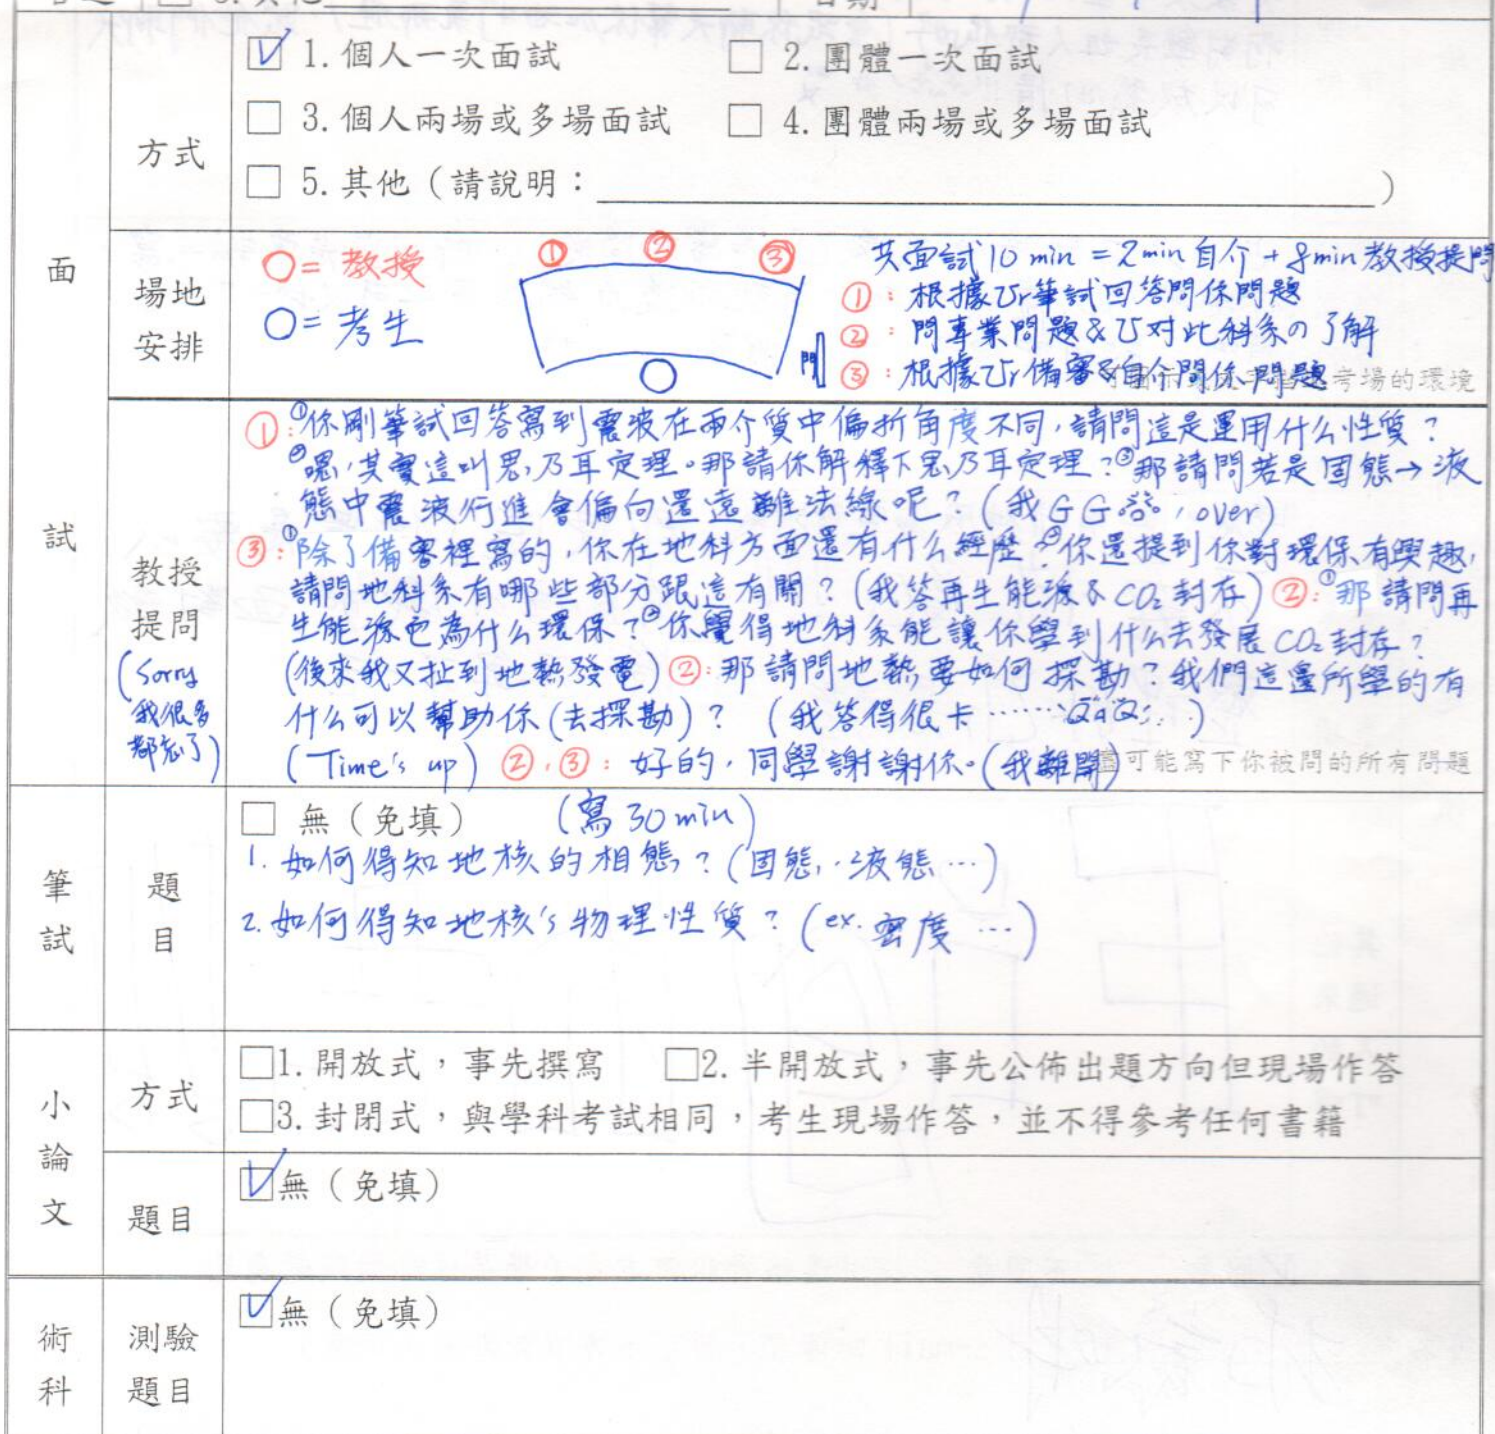 面
試
方式
☑ 1.個人一次面試 □ 2.團體一次面試
□ 3.個人兩場或多場面試 □ 4.團體兩場或多場面試
□ 5.其他（請說明：）
場地
安排
○=教授
○=考生
① ② ③
門
共面試10 min = 2min自介 + 8min教授提問
①：根據ür筆試回答問你問題
②：問專業問題&Ü对此科系の了解
③：根據ür備審&自介問你問題
考場的環境
教授
提問
(Sorry
我很多
都忘了)
①:①你剛筆試回答寫到震波在兩介質中偏折角度不同，請問這是運用什么性質？
②嗯，其實這叫思乃耳定理。那請你解釋下思乃耳定理？③那請問若是固態→液
態中震波行進會偏向還遠離法線呢？(我GG答，over)
③:①除了備審裡寫的，你在地科方面還有什么經歷？②你還提到你對環保有興趣，
請問地科系有哪些部分跟這有關？(我答再生能源&CO₂封存)②:①那請問再
生能源它為什么環保？②你覺得地科系能讓你學到什么去發展CO₂封存？
(後來我又扯到地熱發電)②:那請問地熱要如何探勘？我們這邊所學的有
什么可以幫助你(去探勘)？ (我答得很卡……QAQ…)
(Time's up) ②,③：好的，同學謝謝你。(我離開)
盡可能寫下你被問的所有問題
筆
試
題
目
□ 無（免填） (寫30min)
1.如何得知地核的相態？(固態、液態…)
2.如何得知地核's物理性質？(ex.密度…)
小
論
文
方式
□1.開放式，事先撰寫 □2.半開放式，事先公佈出題方向但現場作答
□3.封閉式，與學科考試相同，考生現場作答，並不得參考任何書籍
題目
☑無（免填）
術
科
測驗
題目
☑無（免填）